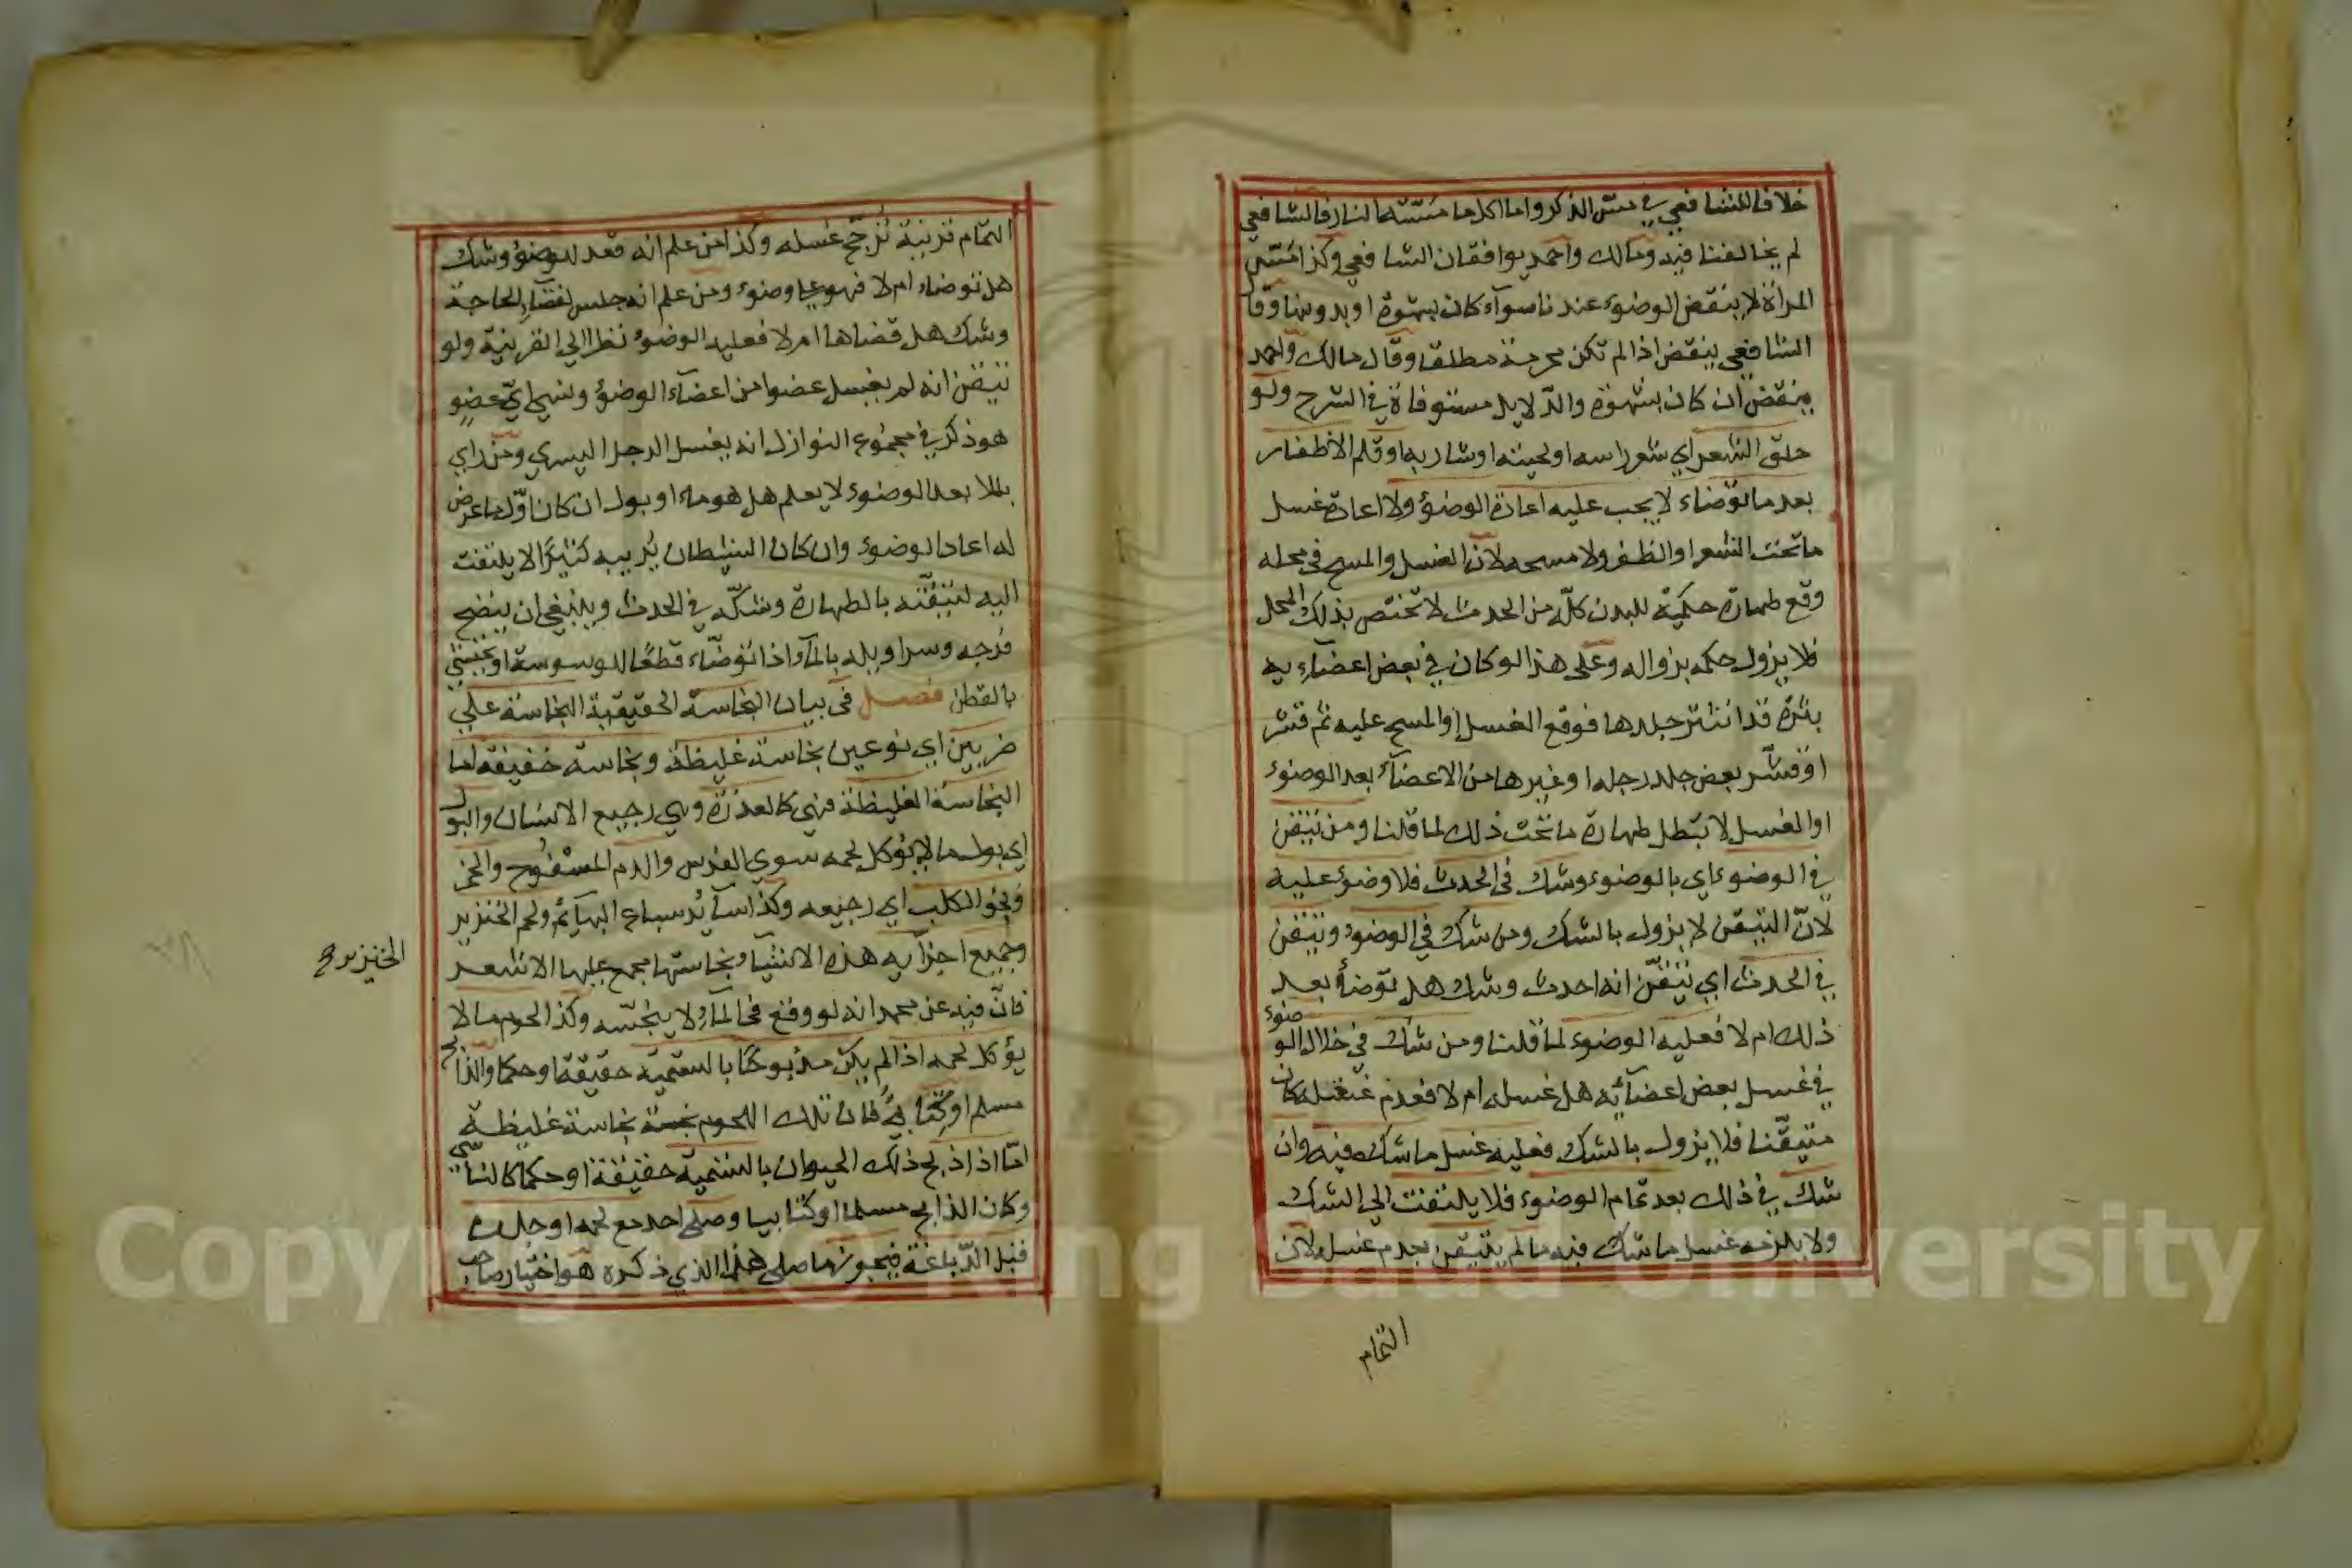 خلافا للشافعي في مس الذكر واما اكل ما مسته النار فالشافعي
لم يخالفنا فيه ومالك واحمد يوافقان الشافعي وكذا مس
المراة لا ينقض الوضوء عندنا سوآء كان بشهوة او بدونها وقال
الشافعي ينقض اذا لم تكن محرمة مطلقا وقال مالك واحمد
ينقض ان كان بشهوة والدلايل مستوفاة في الشرح ولو
حلق الشعر اي شعر راسه او لحيته او شاربه او قلم الاظفار
بعد ما توضاء لا يجب عليه اعادة الوضوء ولا اعادة غسل
ما تحت الشعر او الظفر ولا مسحه لان الغسل والمسح في محله
وقع طهارة حكمية للبدن كله من الحدث لا تختص بذلك المحل
فلا يزول حكمه بزواله وعلى هذا لو كان في بعض اعضآءيه
بثرة قد انتثر جلدها فوقع الغسل او المسح عليه ثم قشر
او قشر بعض جلد رجله او غيرها من الاعضآء بعد الوضوء
او الغسل لا تبطل طهارة ما تحت ذلك لما قلنا ومن تيقن
في الوضوء اي بالوضوء وشك في الحدث فلا وضوء عليه
لان التيقن لا يزول بالشك ومن شك في الوضوء وتيقن
في الحدث اي تيقن انه احدث وشك هل توضأ بعد
ذلك ام لا فعليه الوضوء لما قلنا ومن شك في خلال الوضوء
في غسل بعض اعضآئه هل غسله ام لا فعدم غسله كان
متيقنا فلا يزول بالشك فعليه غسل ما شك فيه وان
شك في ذلك بعد تمام الوضوء فلا يلتفت الى الشك
ولا يلزمه غسل ما شك فيه ما لم يتيقن بعدم غسله لان
التمام
التمام قرينة ترجح غسله وكذا من علم انه قعد للوضوء وشك
هل توضاء ام لا فهو على وضوء ومن علم انه جلس لقضآء الحاجة
وشك هل قضاها ام لا فعليه الوضوء نظرا الى القرينة ولو
تيقن انه لم يغسل عضوا من اعضآء الوضوء ونسي اي عضو
هو ذكر في مجموع النوازل انه يغسل الرجل اليسرى ومن راى
بللا بعد الوضوء لا يعلم هل هو ماء او بول ان كان اول ما عرض
له اعاد الوضوء وان كان الشيطان يريبه كثيرا لا يلتفت
اليه لتيقنه بالطهارة وشكه في الحدث وينبغي ان ينضح
فرجه وسراويله بالمآء اذا توضآء قطعا للوسوسة او يحتشي
بالقطن فصل في بيان النجاسة الحقيقية النجاسة على
ضربين اي نوعين نجاسة غليظة ونجاسة خفيفة اما
النجاسة الغليظة فهي كالعذرة وهي رجيع الانسان والبول
اي بول ما لا يؤكل لحمه سوى الفرس والدم المسفوح والخمر
ونجو الكلب اي رجيعه وكذا سآئر سباع البهآئم ولحم الخنزير
وجميع اجزآيه هذه الاشيآء نجاستها مجمع عليها الا شعر
الخنزير صح
فان فيه عن محمد انه لو وقع في المآء لا ينجسه وكذا لحوم ما لا
يؤكل لحمه اذا لم يكن مذبوحا بالتسمية حقيقة او حكما والذابح
مسلم او كتابي فان تلك اللحوم نجسة نجاسة غليظة
اما اذا ذبح ذلك الحيوان بالتسمية حقيقة او حكما كالناسي
وكان الذابح مسلما او كتابيا وصلى احد مع لحمه او جلده
قبل الدباغة فيجوز ما صلى هذا الذي ذكره هو اختيار صاحب